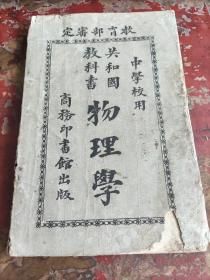 教育部審定
中學校用
共和國
教科書
物理學
商務印書館出版